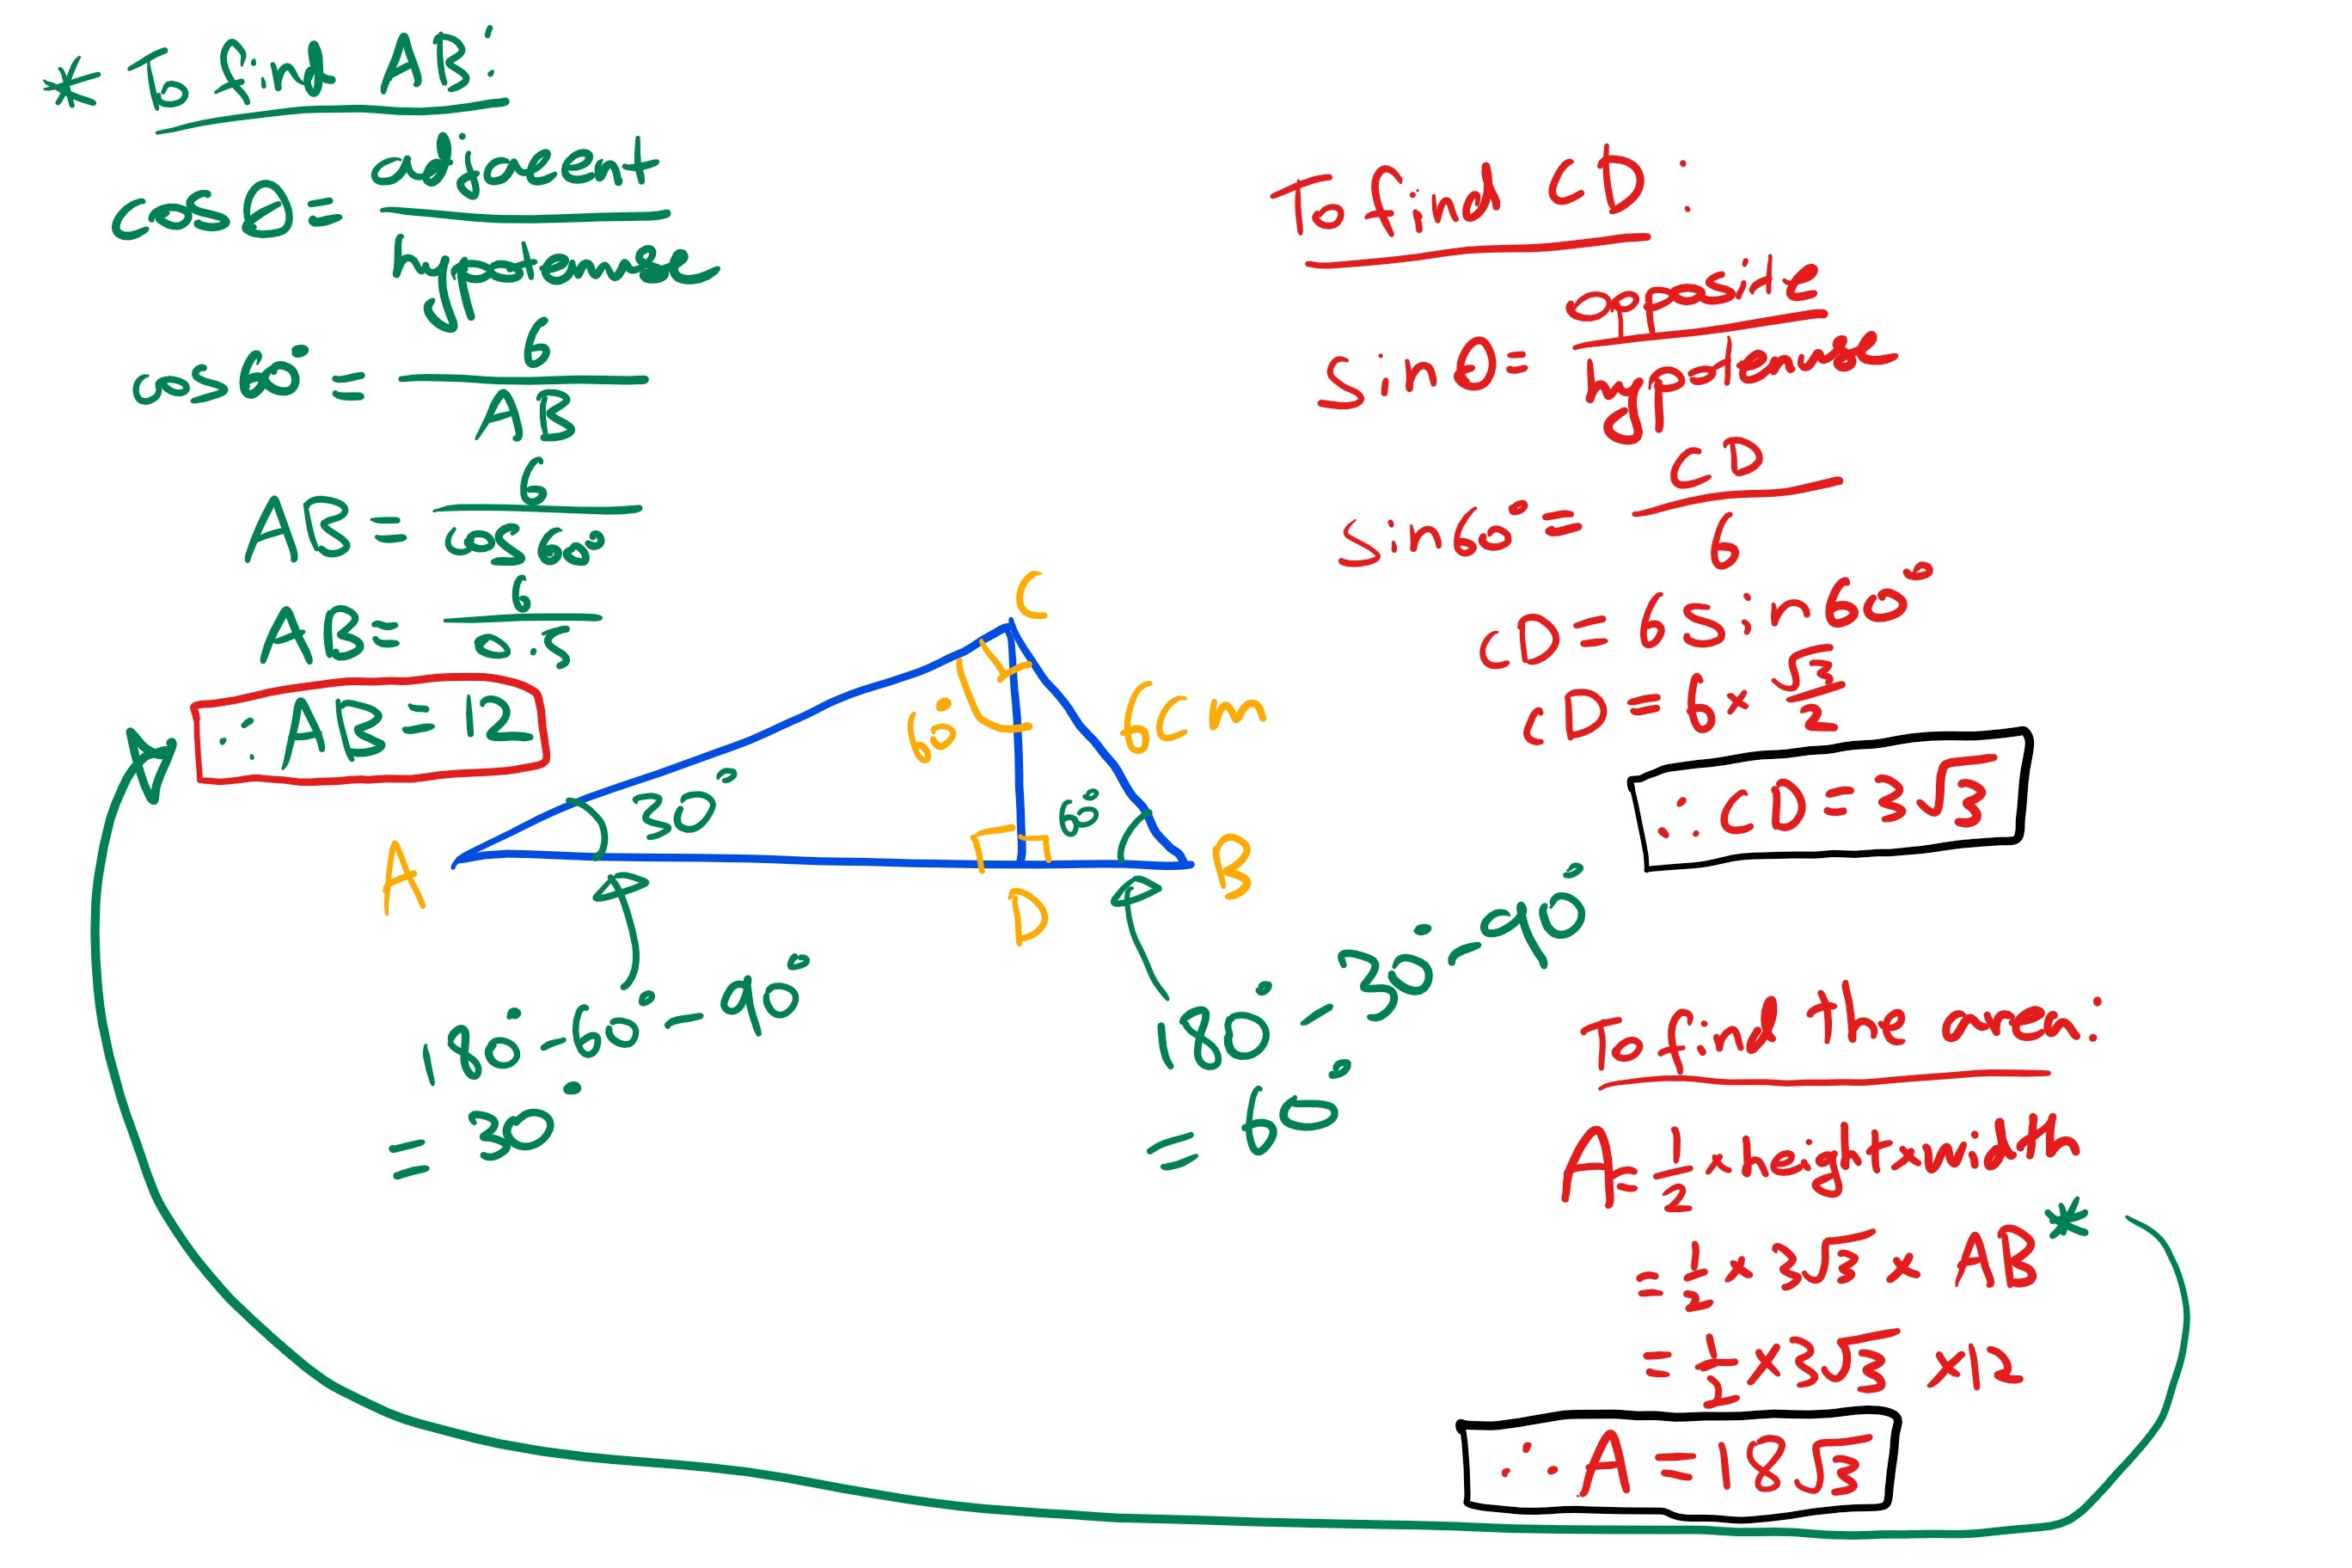 * To find AB:
cosθ = adjacent / hypotenuse
cos60° = 6 / AB
AB = 6 / cos60°
AB = 6 / 0.5
∴ AB = 12
To find CD:
sinθ = opposite / hypotenuse
sin60° = CD / 6
CD = 6sin60°
CD = 6 × √3 / 2
∴ CD = 3√3
C
60°
6cm
30°
60
A
B
D
180° - 60° - 90°
= 30°
180° - 30° - 90°
= 60°
To find the area:
A = 1/2 × height × width
= 1/2 × 3√3 × AB *
= 1/2 × 3√3 × 12
∴ A = 18√3